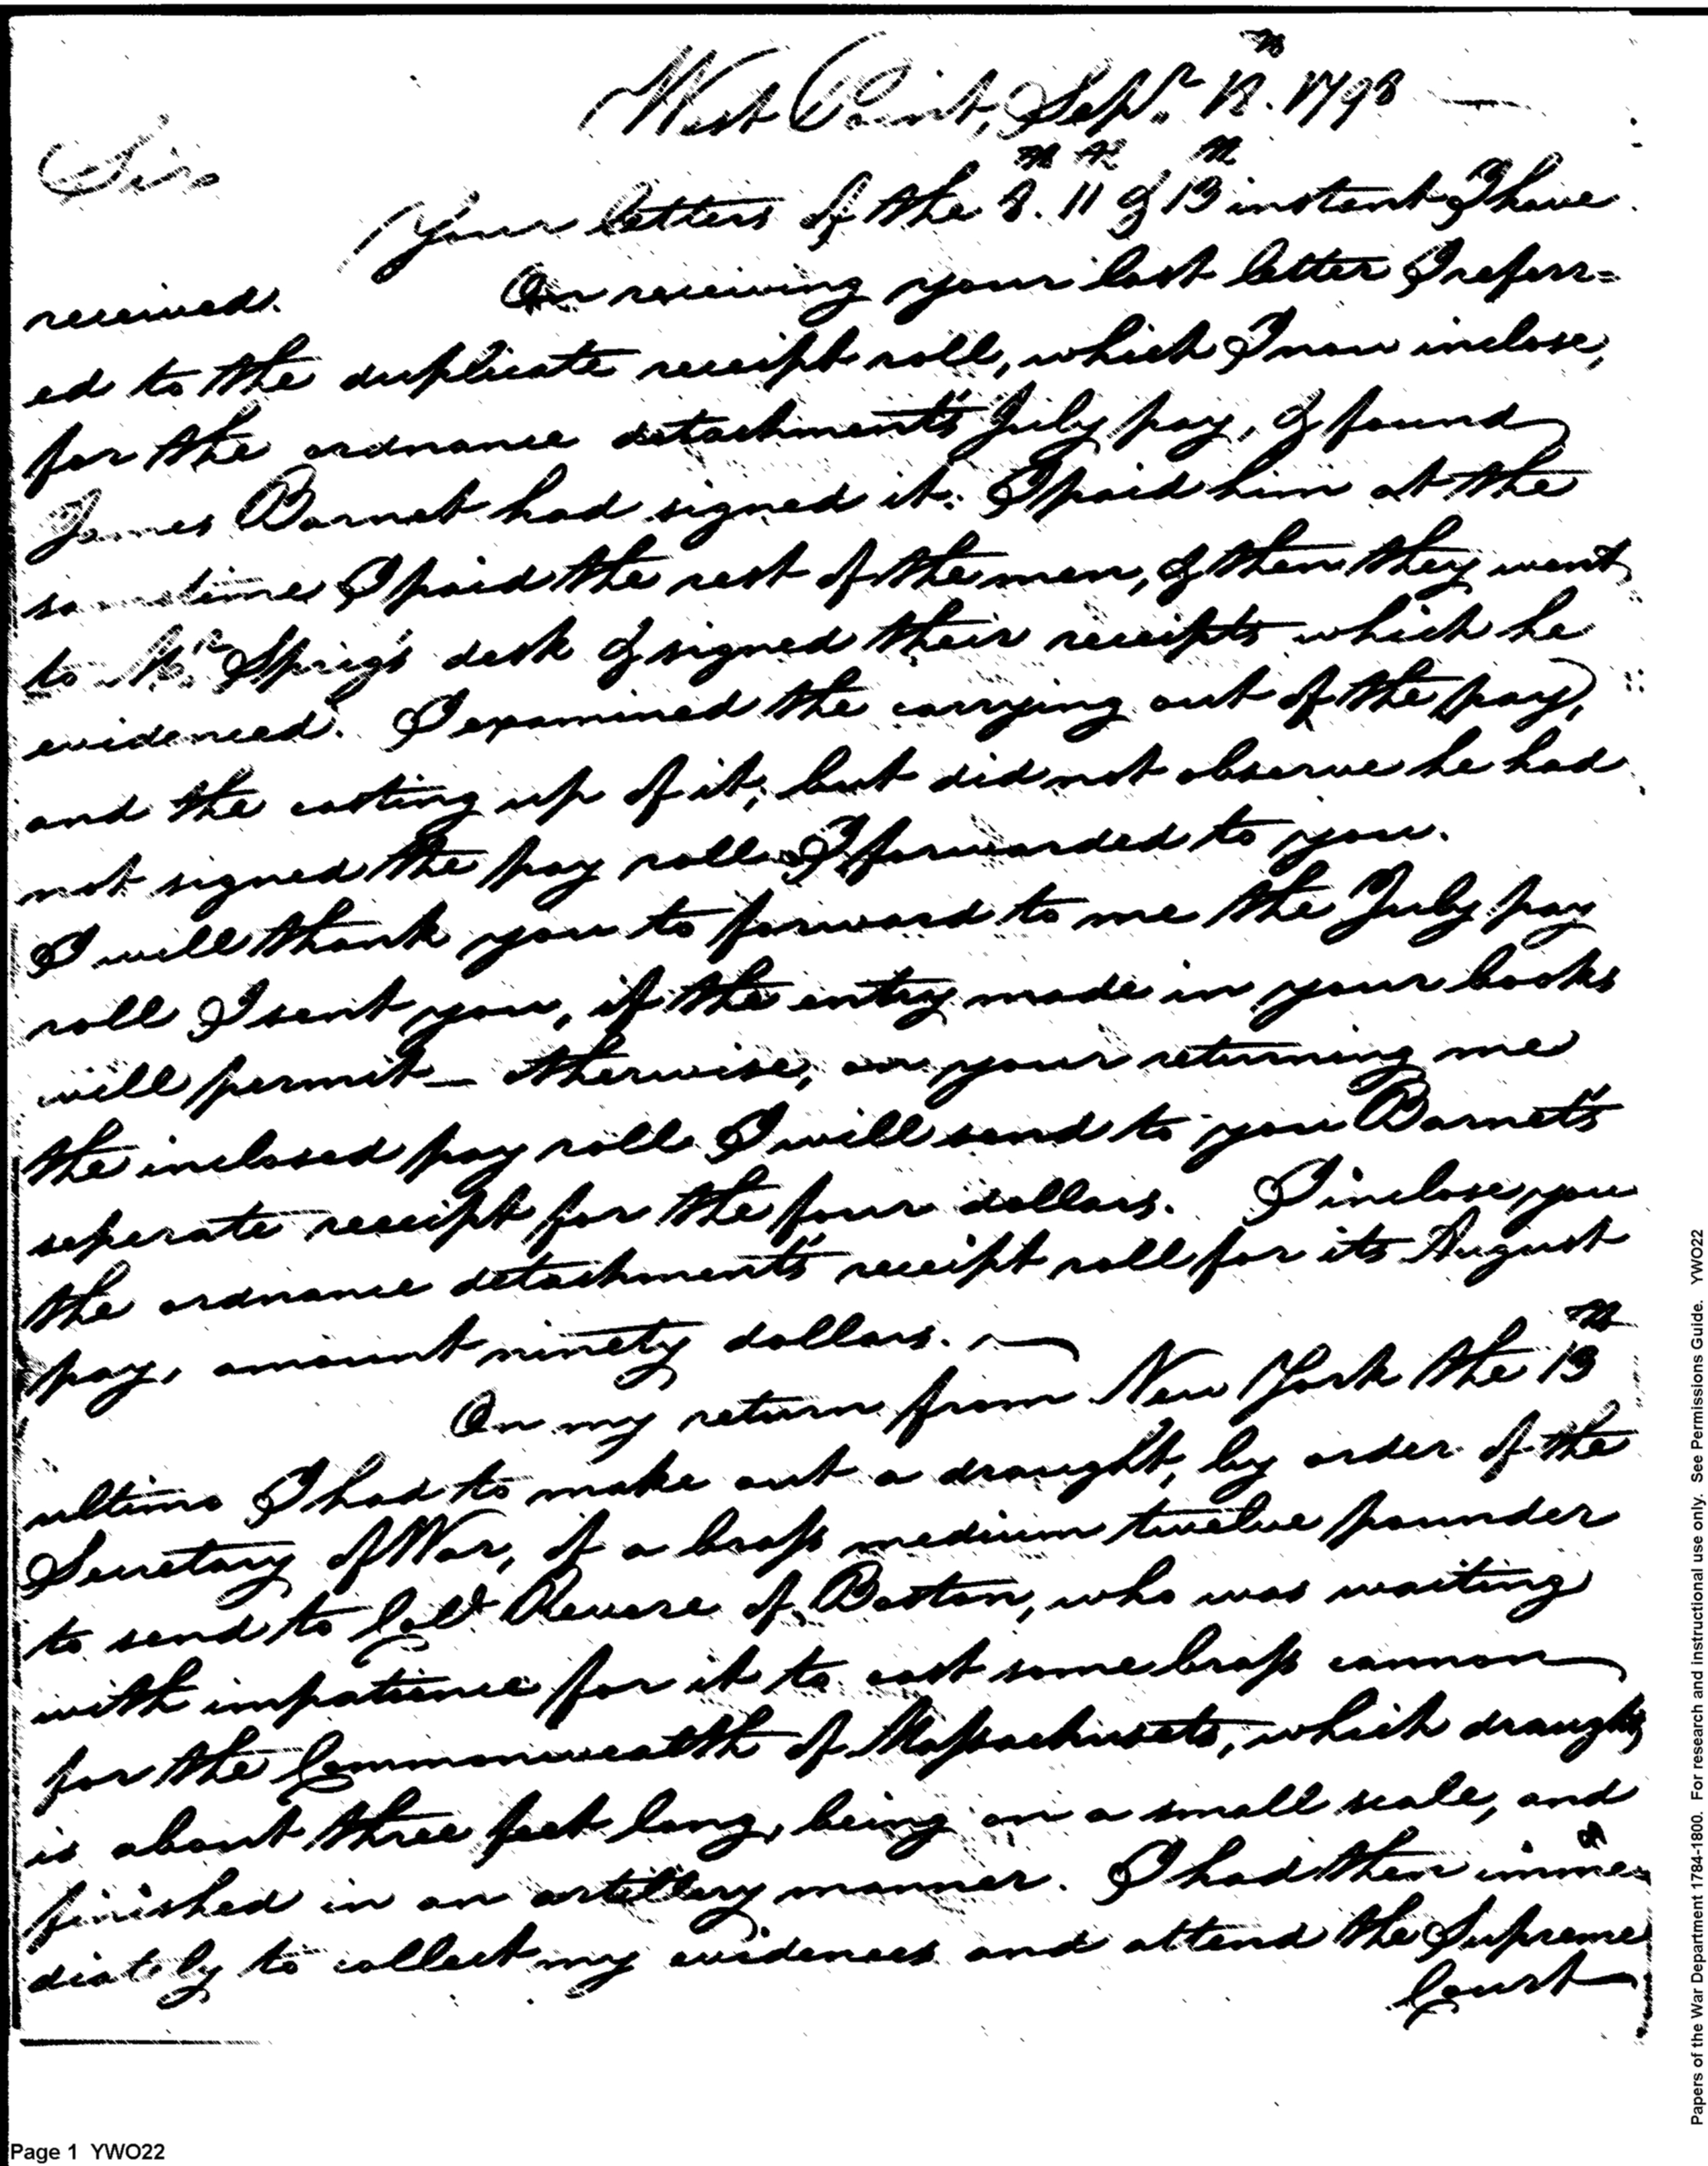 West Point, Sepr. 18th. 1798
Sir
Your letters of the 8th. 11th & 13th instant I have
received. On receiving your last letter I referr=
ed to the duplicate receipt roll, which I now inclose,
for the ordnance detachment's July pay, & found
James Barnet had signed it. I paid him at the
same time I paid the rest of the men, & then they went
to Mr. Sprig's desk & signed their receipts which he
evidenced. I examined the carrying out of the pay,
and the casting up of it, but did not observe he had
not signed the pay roll I forwarded to you.
I will thank you to forward to me the July pay
roll I sent you, if the entry made in your books
will permit — otherwise, on your returning me
the inclosed pay roll I will send to you Barnet's
seperate receipt for the four dollars. I inclose you
the ordnance detachment's receipt roll for its August
pay, amount ninety dollars.
On my return from New York the 13th
ultimo I had to make out a draught, by order of the
Secretary of War, of a brass medium twelve pounder
to send to Colo. Revere of Boston, who was waiting
with impatience for it to cast some brass cannon
for the Commonwealth of Massachusets, which draught
is about three feet long, being on a small scale, and
finished in an artillery manner. I had then imme=
diately to collect my evidences and attend the Supreme
Court
Page 1 YWO22
Papers of the War Department 1784-1800. For research and instructional use only. See Permissions Guide. YWO22